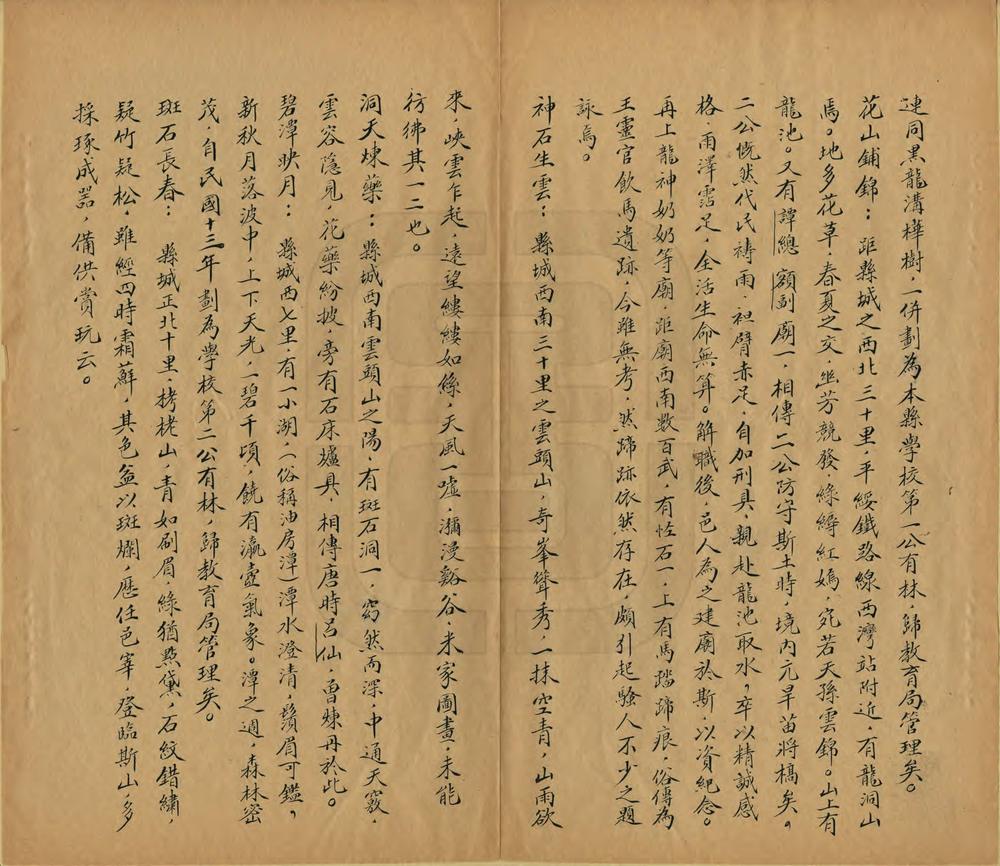 連同黑龍溝樺樹，一併劃為本縣學校第一公有林，歸教育局管理矣。
花山鋪錦：距縣城之西北三十里，平綏鐵路線西灣站附近，有龍洞山
焉。地多花草，春夏之交，坐芳競發，綠縟紅嫣，宛若天孫雲錦。山上有
龍池。又有譚總額副廟一，相傳二公防守斯土時，境內亢旱苗將槁矣。
二公慨然代民禱雨，袒臂赤足，自加刑具，親赴龍池取水，卒以精誠感
格，雨澤霑足，全活生命無算。解職後，邑人為之建廟於斯，以資紀念。
再上龍神奶奶等廟，距廟西南數百武，有怪石一，上有馬踏蹄痕，俗傳為
王靈官飲馬遺跡，今雖無考，然蹄跡依然存在，頗引起騷人不少之題
詠焉。
神石生雲：縣城西南三十里之雲頭山，奇峯聳秀，一抹空青，山雨欲
來，峽雲乍起，遠望縷縷如絲，天風一噓，瀰漫谿谷，米家圖畫，未能
彷彿其一二也。
洞天煉藥：縣城西南雲頭山之陽，有斑石洞一，窈然而深，中通天竅，
雲容隱見，花藥紛披，旁有石床爐具，相傳唐時呂仙，曾煉丹於此。
碧潭映月：縣城西七里，有一小湖，（俗稱油房潭）潭水澄清，鬚眉可鑑，
新秋月落波中，上下天光，一碧千頃，饒有瀛壺氣象。潭之週，森林密
茂，自民國十三年劃為學校第二公有林，歸教育局管理矣。
斑石長春：縣城正北十里，栲栳山，青如刷眉，綠猶點黛，石紋錯繡，
疑竹疑松，雖經四時霜蘚，其色益以斑斕，歷任邑宰，登臨斯山，多
採琢成器，備供賞玩云。